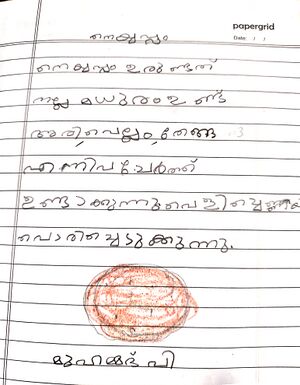 papergrid
Date: / /
നെയ്യപ്പം
നെയ്യപ്പം ഉരുണ്ടത്
നല്ല മധുരം ഉണ്ട്
അരി, വെല്ലം, തേങ്ങ
എന്നിവ ചേർത്ത്
ഉണ്ടാക്കുന്നു വെളിച്ചെണ്ണയിൽ
പൊരിച്ചെടുക്കുന്നു.
മുഹമ്മദ് പി